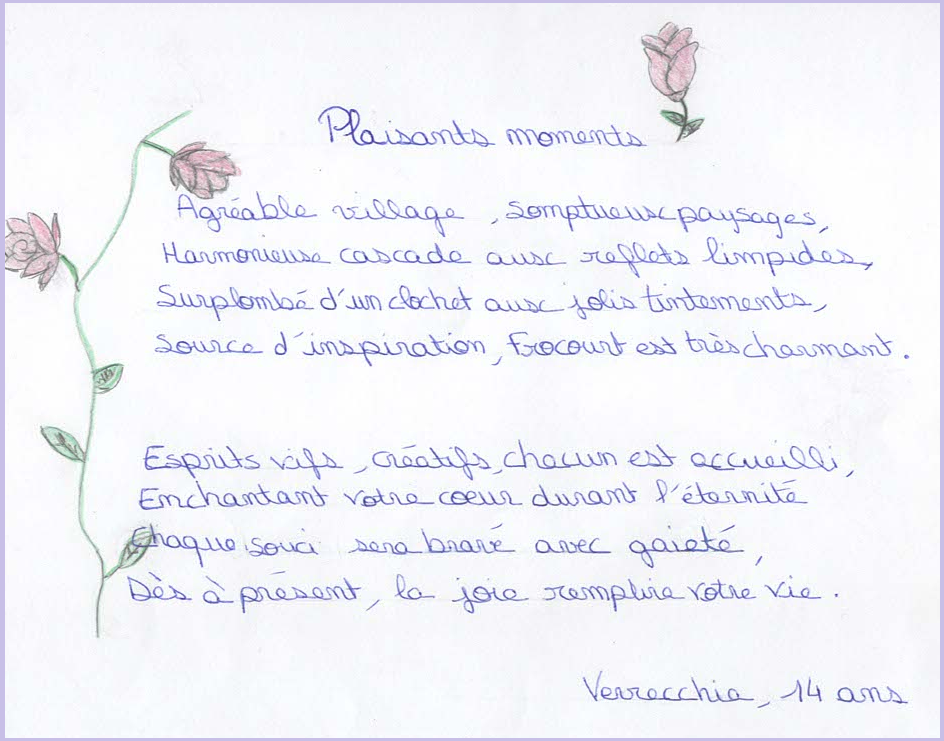 Plaisants moments
Agréable village, somptueux paysages,
Harmonieuse cascade aux reflets limpides,
Surplombé d'un clochet aux jolis tintements,
Source d'inspiration, Frocourt est très charmant.
Esprits vifs, créatifs, chacun est accueilli,
Enchantant votre coeur durant l'éternité
Chaque souci sera bravé avec gaieté,
Dès à présent, la joie remplire votre vie.
Verrecchia, 14 ans